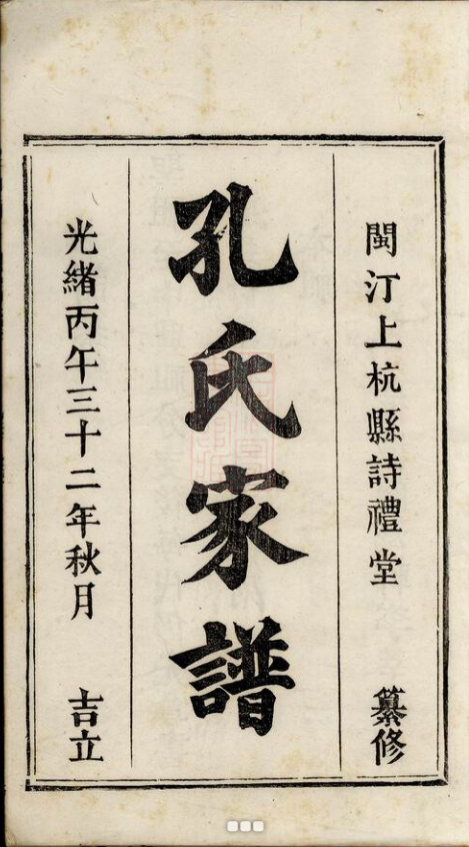 閩汀上杭縣詩禮堂 纂修
孔氏家譜
光緒丙午三十二年秋月 吉立